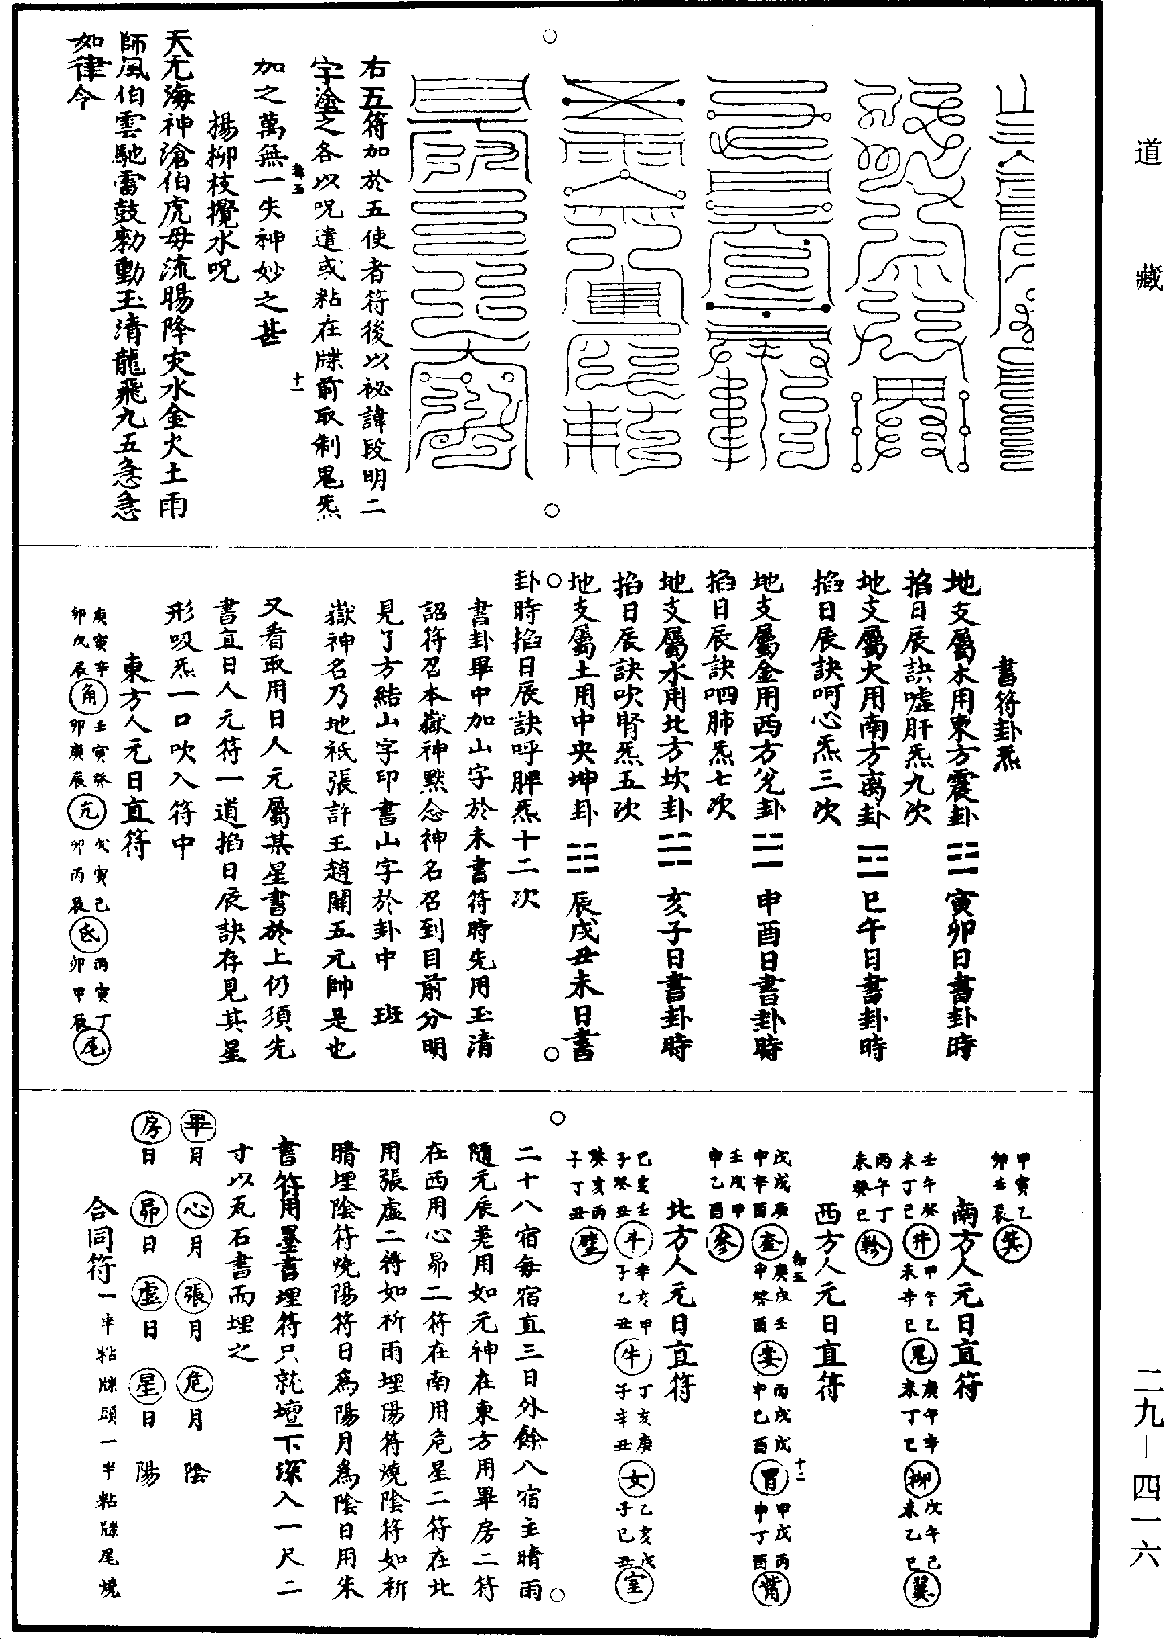 道藏
右五符加於五使者符後以祕諱段明二
字塗之各以呪遣或粘在牒前取制鬼炁
加之萬無一失神妙之甚
楊柳枝攪水呪
天无海神滄伯虎母流暘降灾水金火土雨
師風伯雲馳雷鼓勑動玉清龍飛九五急急
如律令
書符卦炁
地支屬木用東方震卦☳寅卯日書卦時
掐日辰訣噓肝炁九次
地支屬火用南方离卦☲巳午日書卦時
掐日辰訣呵心炁三次
地支屬金用西方兌卦☱申酉日書卦時
掐日辰訣呬肺炁七次
地支屬水用北方坎卦☵亥子日書卦時
掐日辰訣吹腎炁五次
地支屬土用中央坤卦☷辰戌丑未日書
卦時掐日辰訣呼脾炁十二次
書卦畢中加山字於未書符時先用玉清
詔符召本嶽神黙念神名召到目前分明
見了方結山字印書山字於卦中 班
嶽神名乃地祇張許王趙關五元帥是也
又看取用日人元屬某星書於上仍須先
書直日人元符一道掐日辰訣存見其星
形吸炁一口吹入符中
東方人元日直符
庚寅辛卯戊辰角壬寅癸卯庚辰亢戊寅己卯丙辰氐丙寅丁卯甲辰尾
甲寅乙卯壬辰箕
南方人元日直符
壬午癸未丁巳井甲午乙未辛巳鬼庚午辛未丁巳柳戊午己未乙巳翼
丙午丁未癸巳軫
西方人元日直符
戊戌庚申辛酉奎庚戌壬申癸酉婁丙戌戊申己酉胃甲戌丙申丁酉觜
壬戌甲申乙酉參
北方人元日直符
乙亥壬子癸丑斗辛亥甲子乙丑牛丁亥庚子辛丑女乙亥戊子己丑室
癸亥丙子丁丑壁
二十八宿每宿直三日外餘八宿主晴雨
隨元辰老用如元神在東方用畢房二符
在西用心昴二符在南用危星二符在北
用張虛二符如祈雨埋陽符燒陰符如祈
晴埋陰符燒陽符日為陽月為陰日用朱
書符用墨書埋符只就壇下深入一尺二
寸以瓦石書而埋之
畢月 心月 張月 危月 陰
房日 昴日 虛日 星日 陽
合同符一半粘牒頭一半粘牒尾燒
二九—四一六